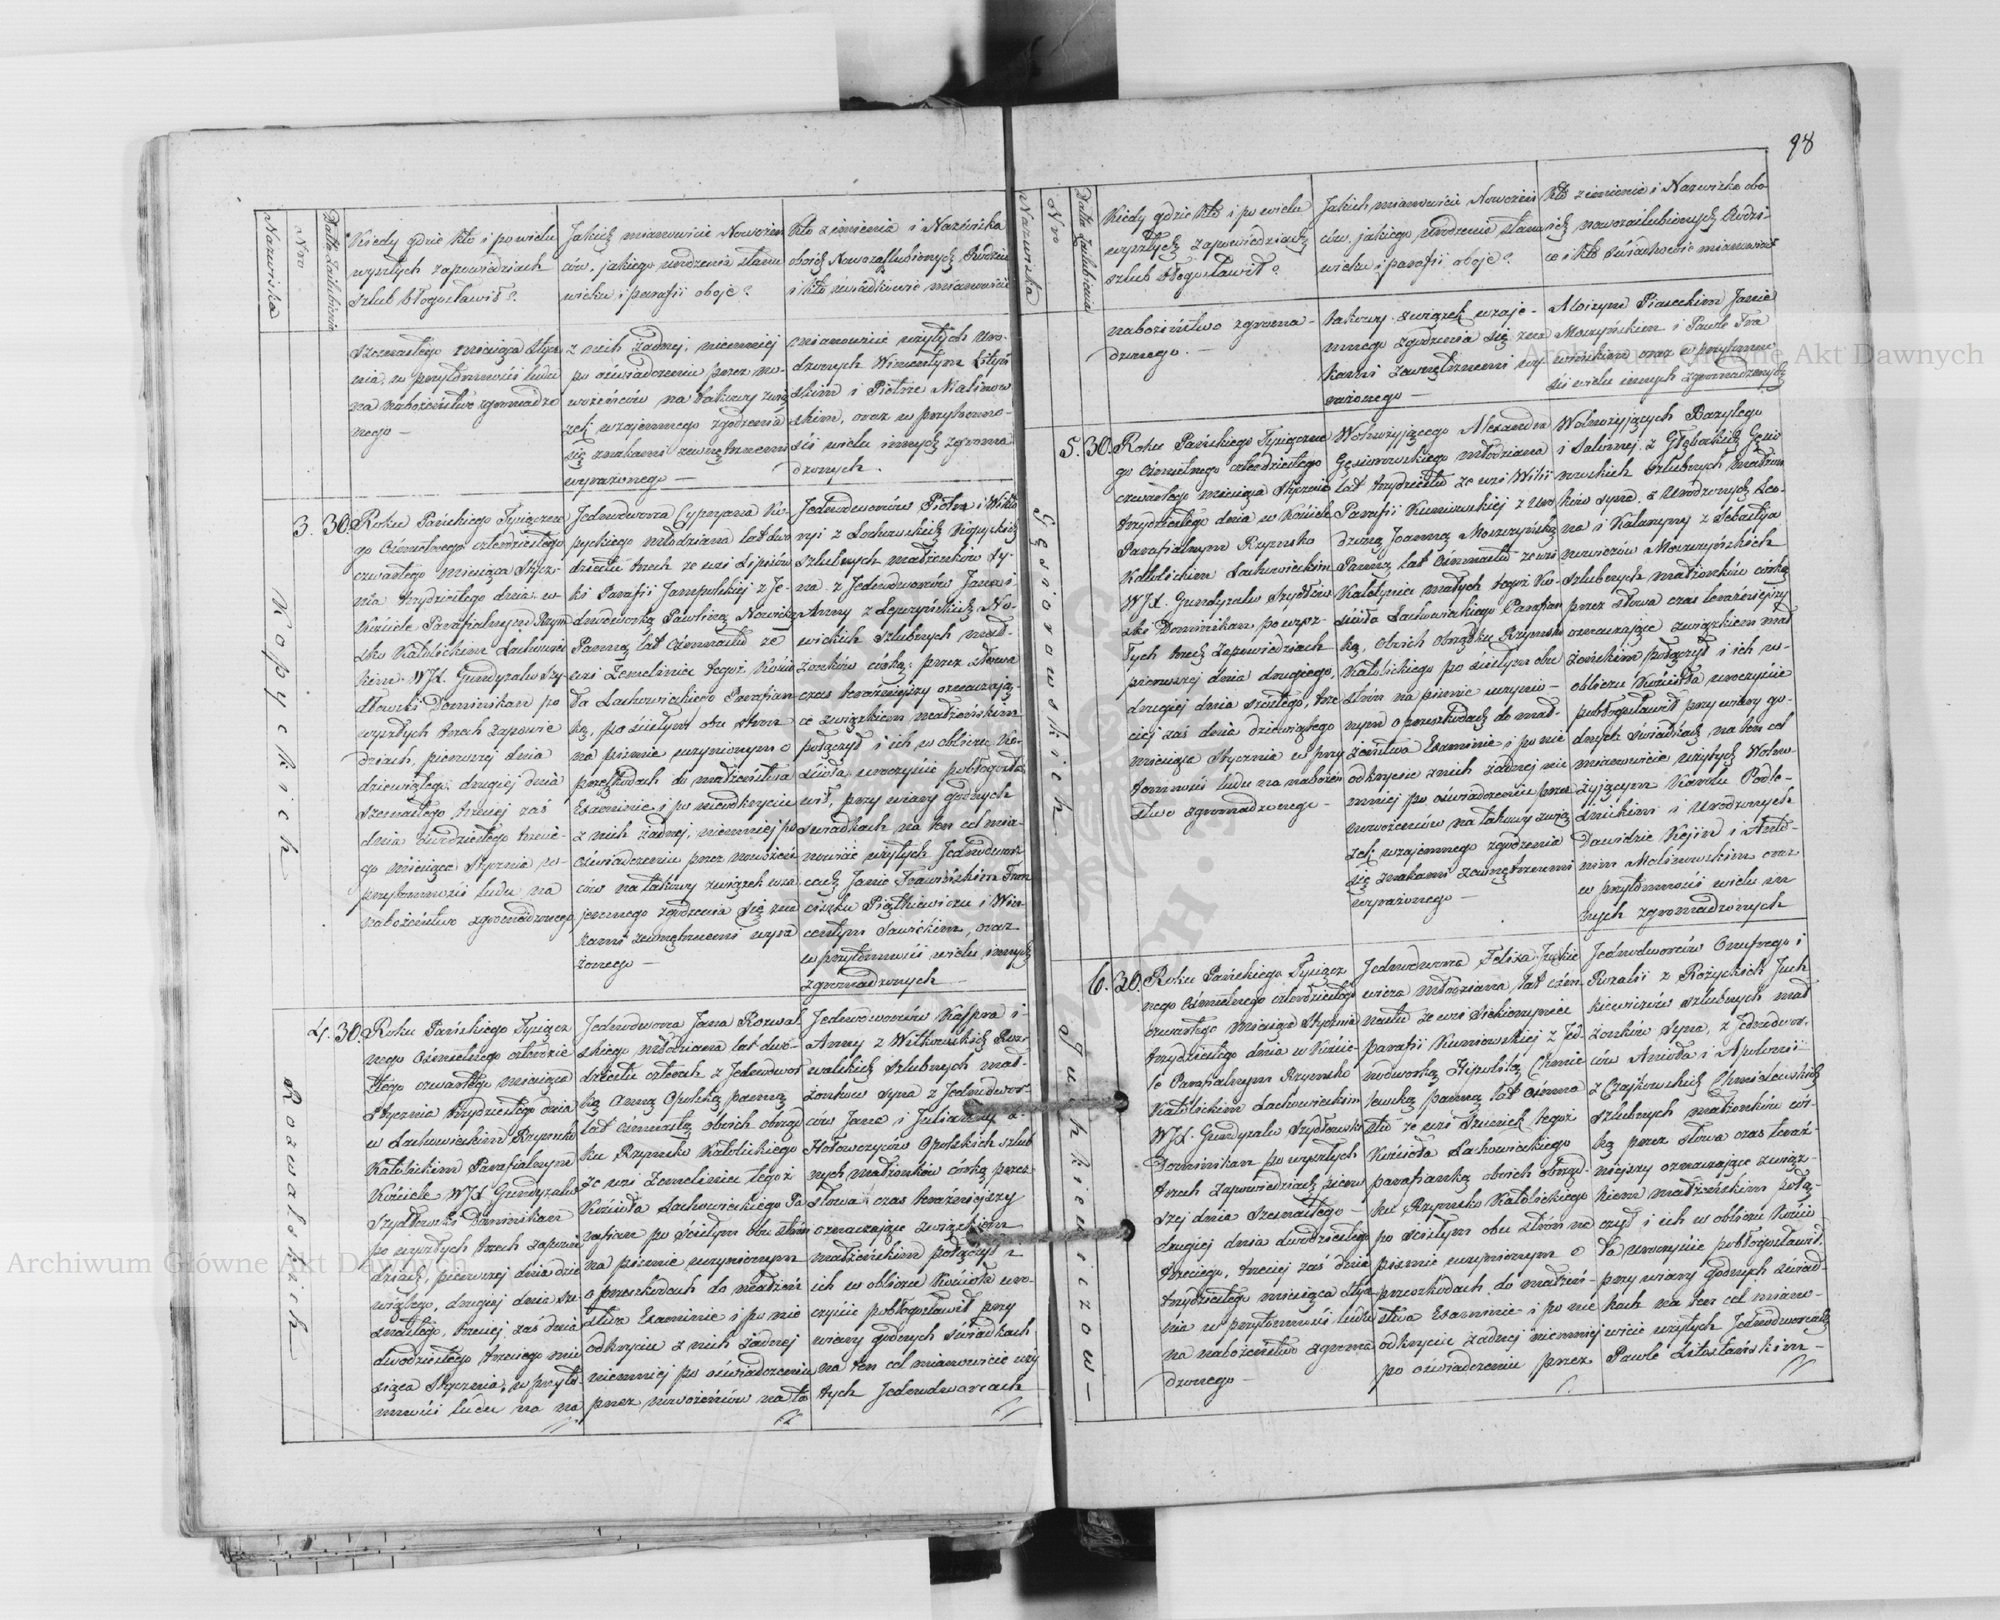 98
Nazwiska
Nro
Datta Zaślubienia
Kiedy gdzie kto i po wielu
wyszłych zapowiedziach
szlub błogosławił?
Jakich mianowicie Nowożeń
ców, jakiego urodzenia stanu
wieku i parafii oboje?
Kto z imienia i Nazwiska
oboich Nowozaślubionych Rodzice
i kto świadkowie mianowicie
szesnastego miesiąca Stycz
nia, w przytomności ludu
na nabożeństwo zgromadzo
nego —
z nich żadnej, niemniej
po oświadczeniu przez no-
wożeńców na takowy zwią
zek wzajemnego zgodzenia
się znakami zewnętrznemi
wyrażonego —
mianowicie wziętych Uro-
dzonych Wincentym Lityń
skim i Piotrze Malinow
skim, oraz w przytomno-
ści wielu innych zgroma
dzonych.
3.
30.
Kopyckich
Roku Pańskiego Tysiączne
go Ośmsetnego czterdziestego
czwartego miesiąca Stycz-
nia trzydziestego dnia, w
Kościele Parafialnym Rzym
sko Katolickim Lachowiec
kim WJX. Gundyzalw Szy-
dłowski Dominikan po
wyszłych trzech zapowie
dziach, pierwszej dnia
dziewiątego, drugiej dnia
szesnastego trzeciej zaś
dnia dwudziestego trzecie-
go miesiąca Stycznia w-
przytomności ludu na
nabożeństwo zgromadzonego
Jednodworca Cypryana Ko
pyckiego młodziana lat dwu
dziestu trzech ze wsi Lipków
ki Parafii Jampolskiej z Je-
dnodworką Pawliną Nowicką
Panną lat Ośmnastu ze
wsi Zemeliniec tegoż Kościo
ła Lachowieckiego Parafian
ką, po ścisłym obu stron
na piśmie uczynionym o
przeszkodach do małżeństwa
Examinie i po nieodkryciu
z nich żadnej, niemniej po
oświadczeniu przez nowożeń
ców na takowy związek wza
jemnego zgodzenia się zna
kami zewnętrznemi wyra
żonego —
Jednodworców Piotra i Wikto
ryi z Lochowskich Kopyckich
szlubnych małżonków Sy-
na, z Jednodworców Jana i
Anny z Lepczyńskich No-
wickich szlubnych mał-
żonków córką; przez słowa
czas teraźniejszy oznaczają-
ce związkiem małżeńskim
połączył i ich w obliczu Ko-
ścioła uroczyście pobłogosła
wił, przy wiary godnych
świadkach na ten cel mia-
nowicie wziętych Jednodwor
cach Janie Trawińskim Fran
ciszku Piątkiewiczu i Win
centym Sawickim, oraz
w przytomności wielu innych
zgromadzonych —
4.
30.
Rozwalskich
Roku Pańskiego Tysiącz
nego Ośmsetnego czterdzie
stego czwartego miesiąca
Stycznia trzydziestego dnia
w Lachowieckim Rzymsko
Katolickim Parafialnym
Kościele WJX. Gundyzalw
Szydłowski Dominikan
po wyszłych trzech zapowie
dziach, pierwszej dnia dzie
wiątego, drugiej dnia sze-
snastego, trzeciej zaś dnia
dwudziestego trzeciego mie
siąca Stycznia, w przyto
mności ludu na na
Jednodworca Jana Rozwal
skiego młodziana lat dwu-
dziestu czterech z Jednodwor
ką Anną Opolską panną
lat ośmnastu oboich obrząd
ku Rzymsko Katolickiego
ze wsi Zemeliniec tegoż
Kościoła Lachowieckiego Pa
rafian po ścisłym obu stron
na piśmie uczynionym
o przeszkodach do małżeń
stwa Examinie i po nie
odkryciu z nich żadnej
niemniej po oświadczeniu
przez nowożeńców na ta
Jednodworców Kaspra i
Anny z Witkowskich Roz-
walskich szlubnych mał-
żonków syna z Jednodwor-
ców Jana i Julianny z
Hołowczyców Opolskich szlub
nych małżonków córką, przez
słowa czas teraźniejszy
oznaczające związkiem
małżeńskim połączył i
ich w obliczu Kościoła uro-
czyście pobłogosławił przy
wiary godnych świadkach
na ten cel mianowicie wzię
tych Jednodworcach
Nazwiska
Nro
Data Zaślubienia
Kiedy gdzie kto i po wielu
wyszłych zapowiedziach
szlub błogosławił?
Jakich mianowicie Nowożeń
ców, jakiego urodzenia stanu
wieku i parafii oboje?
Kto z imienia i Nazwiska obo
ich nowozaślubionych Rodzi-
ce i kto świadkowie mianowicie
nabożeństwo zgroma-
dzonego —
takowy związek wzaje-
mnego zgodzenia się zna
kami zewnętrznemi wy
rażonego —
Alozym Piaseckim Janie
Moszyńskim i Pawle Tra
wińskim oraz w przytomno
ści wielu innych zgromadzonych
5.
30.
Gęsiorowskich
Roku Pańskiego Tysiączne
go Ośmsetnego czterdziestego
czwartego miesiąca Stycznia
trzydziestego dnia w Kościele
Parafialnym Rzymsko
Katolickim Lachowieckim
WJX. Gundyzalw Szydłow
ski Dominikan po wysz-
łych trzech zapowiedziach
pierwszej dnia drugiego,
drugiej dnia szóstego, trze
ciej zaś dnia dziewiątego
miesiąca Stycznia w przy
tomności ludu na nabożeń
stwo zgromadzonego —
Wolnożyjącego Alexandra
Gęsiorowskiego młodziana
lat trzydziestu ze wsi Wilii
Parafii Kuniowskiej z Uro
dzoną Joanną Moszczyńską
Panną lat Ośmnastu ze wsi
Kałotyniec małych tegoż Ko-
ścioła Lachowieckiego Parafian
ką, oboich obrządku Rzymsko
Katolickiego po ścisłym obu
stron na piśmie uczynio-
nym o przeszkodach do mał-
żeństwa Examinie i po nie
odkryciu z nich żadnej nie
mniej po oświadczeniu przez
nowożeńców na takowy zwią
zek wzajemnego zgodzenia
się znakami zewnętrznemi
wyrażonego —
Wolnożyjących Bazylego
i Salomei z Głębockich Gęsio
rowskich szlubnych małżon
ków syna, z Urodzonych Leo-
na i Katarzyny z Sebastya
nowiczów Moszczyńskich
szlubnych małżonków córką
przez słowa czas teraźniejszy
oznaczające związkiem mał
żeńskim połączył i ich w-
obliczu Kościoła uroczyście
pobłogosławił przy wiary go-
dnych świadkach na ten cel
mianowicie wziętych Wolno-
żyjącym Karolu Podle-
śnickim i Urodzonych
Dawidzie Kejin i Anto-
nim Malinowskim oraz
w przytomności wielu in
nych zgromadzonych
6.
30.
Juchkiewiczow-
Roku Pańskiego Tysiącz
nego Ośmsetnego czterdziestego
czwartego miesiąca Stycznia
trzydziestego dnia w Koście-
le Parafialnym Rzymsko
Katolickim Lachowieckim
WJX. Gundyzalw Szydłowski
Dominikan po wyszłych
trzech zapowiedziach pierw
szej dnia szesnastego —
drugiej dnia dwudziestego
trzeciego, trzeciej zaś dnia
trzydziestego miesiąca Stycz
nia w przytomności ludu
na nabożeństwo zgroma
dzonego —
Jednodworca Felixa Juchkie
wicza młodziana, lat ośm
nastu ze wsi Siekierzyniec
parafii Kuniowskiej z Jed-
nodworką Hipolitą Chmie
lewską panną lat ośmna
stu ze wsi Trusiek tegoż
Kościoła Lachowieckiego
parafianką oboich obrząd-
ku Rzymsko Katolickiego
po ścisłym obu stron na
piśmie uczynionym o
przeszkodach do małżeń-
stwa Examinie i po nie
odkryciu żadnej niemniej
po oświadczeniu przez
Jednodworców Onufrego i
Rozalii z Rożyckich Juch
kiewiczów szlubnych mał
żonków syna, z Jednodwor-
ców Anioła i Apolonii
z Czajkowskich Chmielewskich
szlubnych małżonków cór-
ką przez słowa czas teraź-
niejszy oznaczające związ-
kiem małżeńskim połą-
czył i ich w obliczu Kościo
ła uroczyście pobłogosławił,
przy wiary godnych świad-
kach na ten cel miano-
wicie wziętych Jednodworcach
Pawle Litosławskim —
Archiwum Główne Akt Dawnych
Archiwum Główne Akt Dawnych